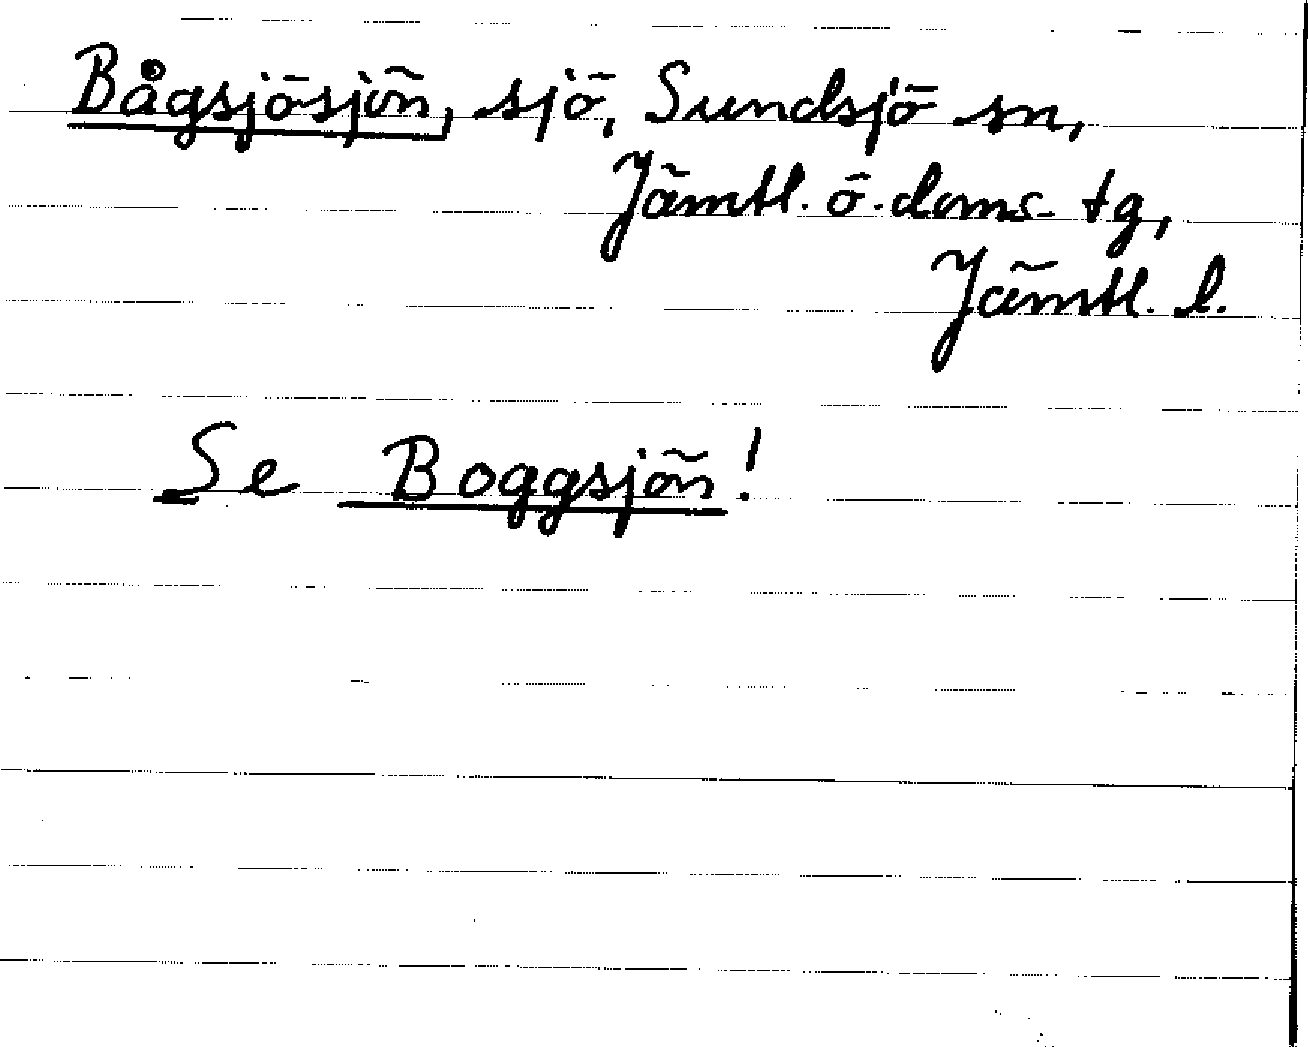 Bågsjösjön, sjö, Sundsjö sn,
Jämtl. ö. doms. tg,
Jämtl. l.
Se Boggsjön!